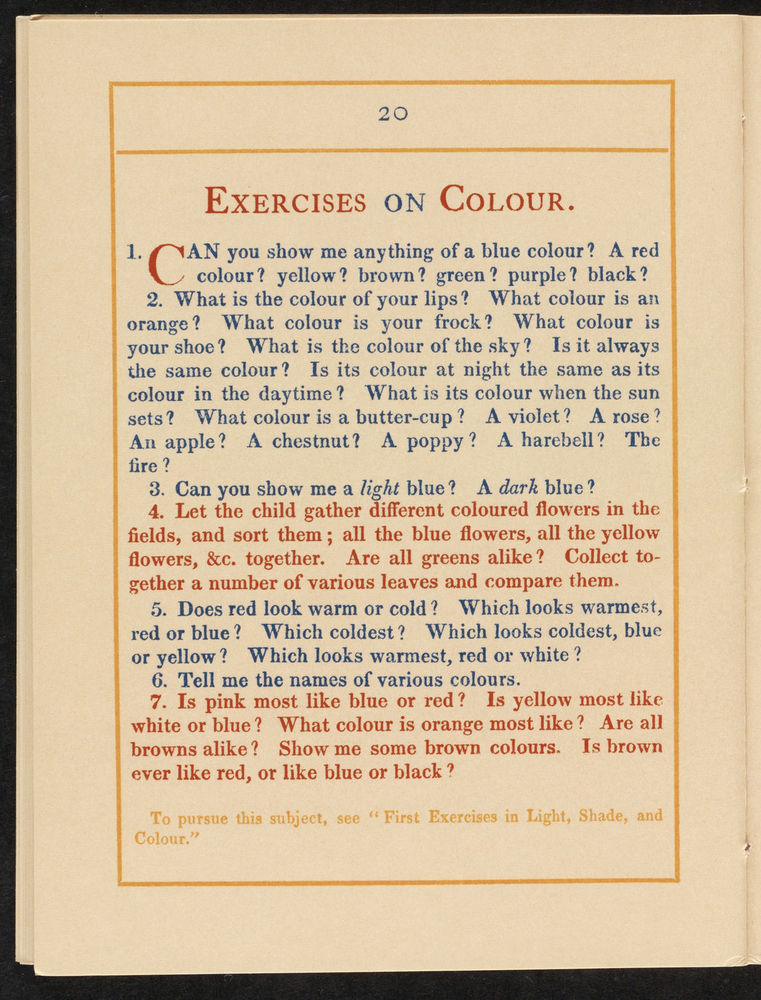 20
EXERCISES ON COLOUR.
1. CAN you show me anything of a blue colour? A red
colour? yellow? brown? green? purple? black?
2. What is the colour of your lips? What colour is an
orange? What colour is your frock? What colour is
your shoe? What is the colour of the sky? Is it always
the same colour? Is its colour at night the same as its
colour in the daytime? What is its colour when the sun
sets? What colour is a butter-cup? A violet? A rose?
An apple? A chestnut? A poppy? A harebell? The
fire?
3. Can you show me a light blue? A dark blue?
4. Let the child gather different coloured flowers in the
fields, and sort them; all the blue flowers, all the yellow
flowers, &c. together. Are all greens alike? Collect to-
gether a number of various leaves and compare them.
5. Does red look warm or cold? Which looks warmest,
red or blue? Which coldest? Which looks coldest, blue
or yellow? Which looks warmest, red or white?
6. Tell me the names of various colours.
7. Is pink most like blue or red? Is yellow most like
white or blue? What colour is orange most like? Are all
browns alike? Show me some brown colours. Is brown
ever like red, or like blue or black?
To pursue this subject, see “First Exercises in Light, Shade, and
Colour.”